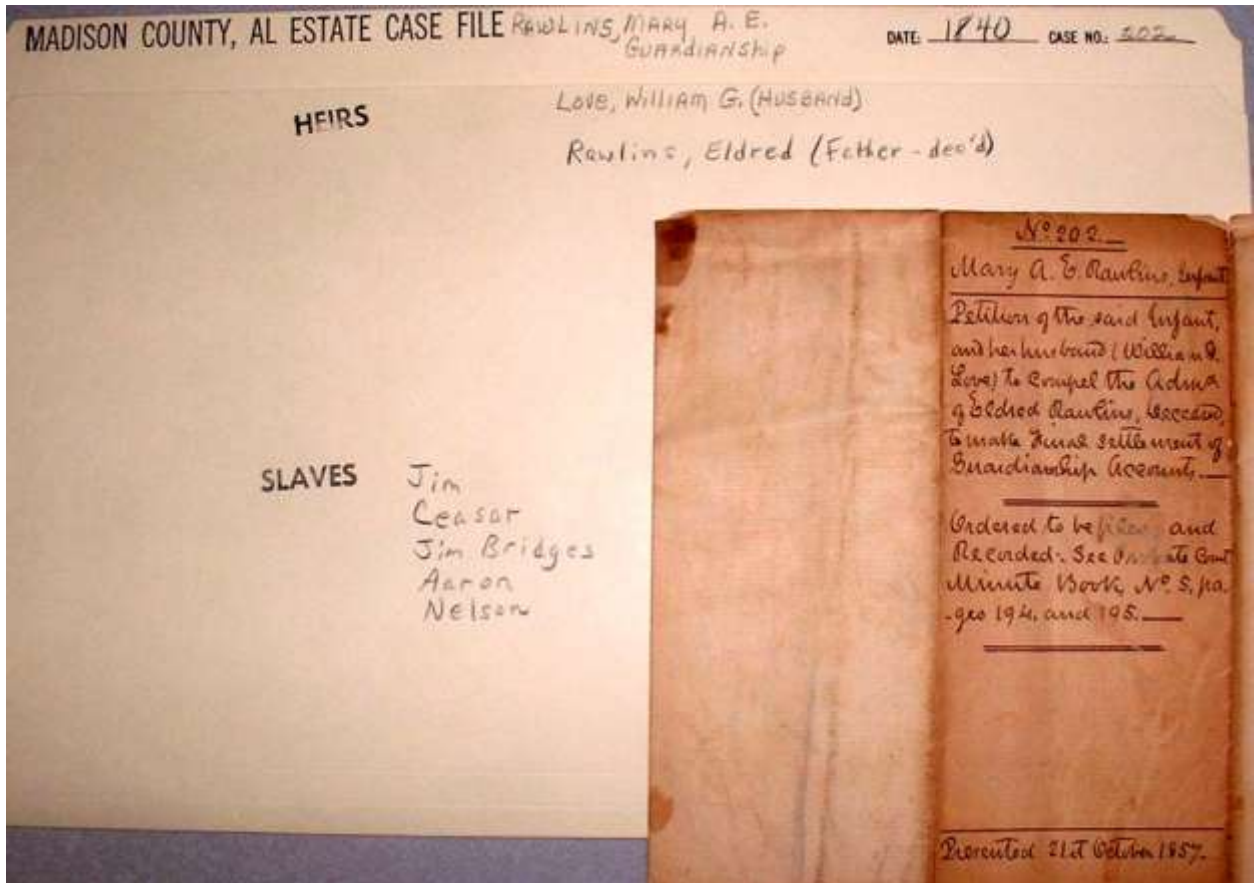 MADISON COUNTY, AL ESTATE CASE FILE RAWLINS, MARY A. E. DATE: 1840 CASE NO.: 202
GUARDIANSHIP
HEIRS
Love, William G. (HUSBAND)
Rawlins, Eldred (Father - dec'd)
SLAVES
Jim
Ceasar
Jim Bridges
Aaron
Nelson
Nº 202.
Mary A. E. Rawlins, Infant
Petition of the said Infant,
and her husband (William G.
Love) to compel the Admr
of Eldred Rawlins, deceased,
to make Final settlement of
Guardianship Accounts.
Ordered to be filed and
Recorded. See Probate Court
Minute Book, Nº. 8, pa-
-ges 194, and 195.
Presented 21st October 1857.